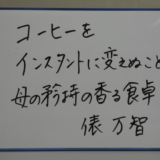 コーヒーを
インスタントに変えぬこと
母の矜持の香る食卓
俵 万智